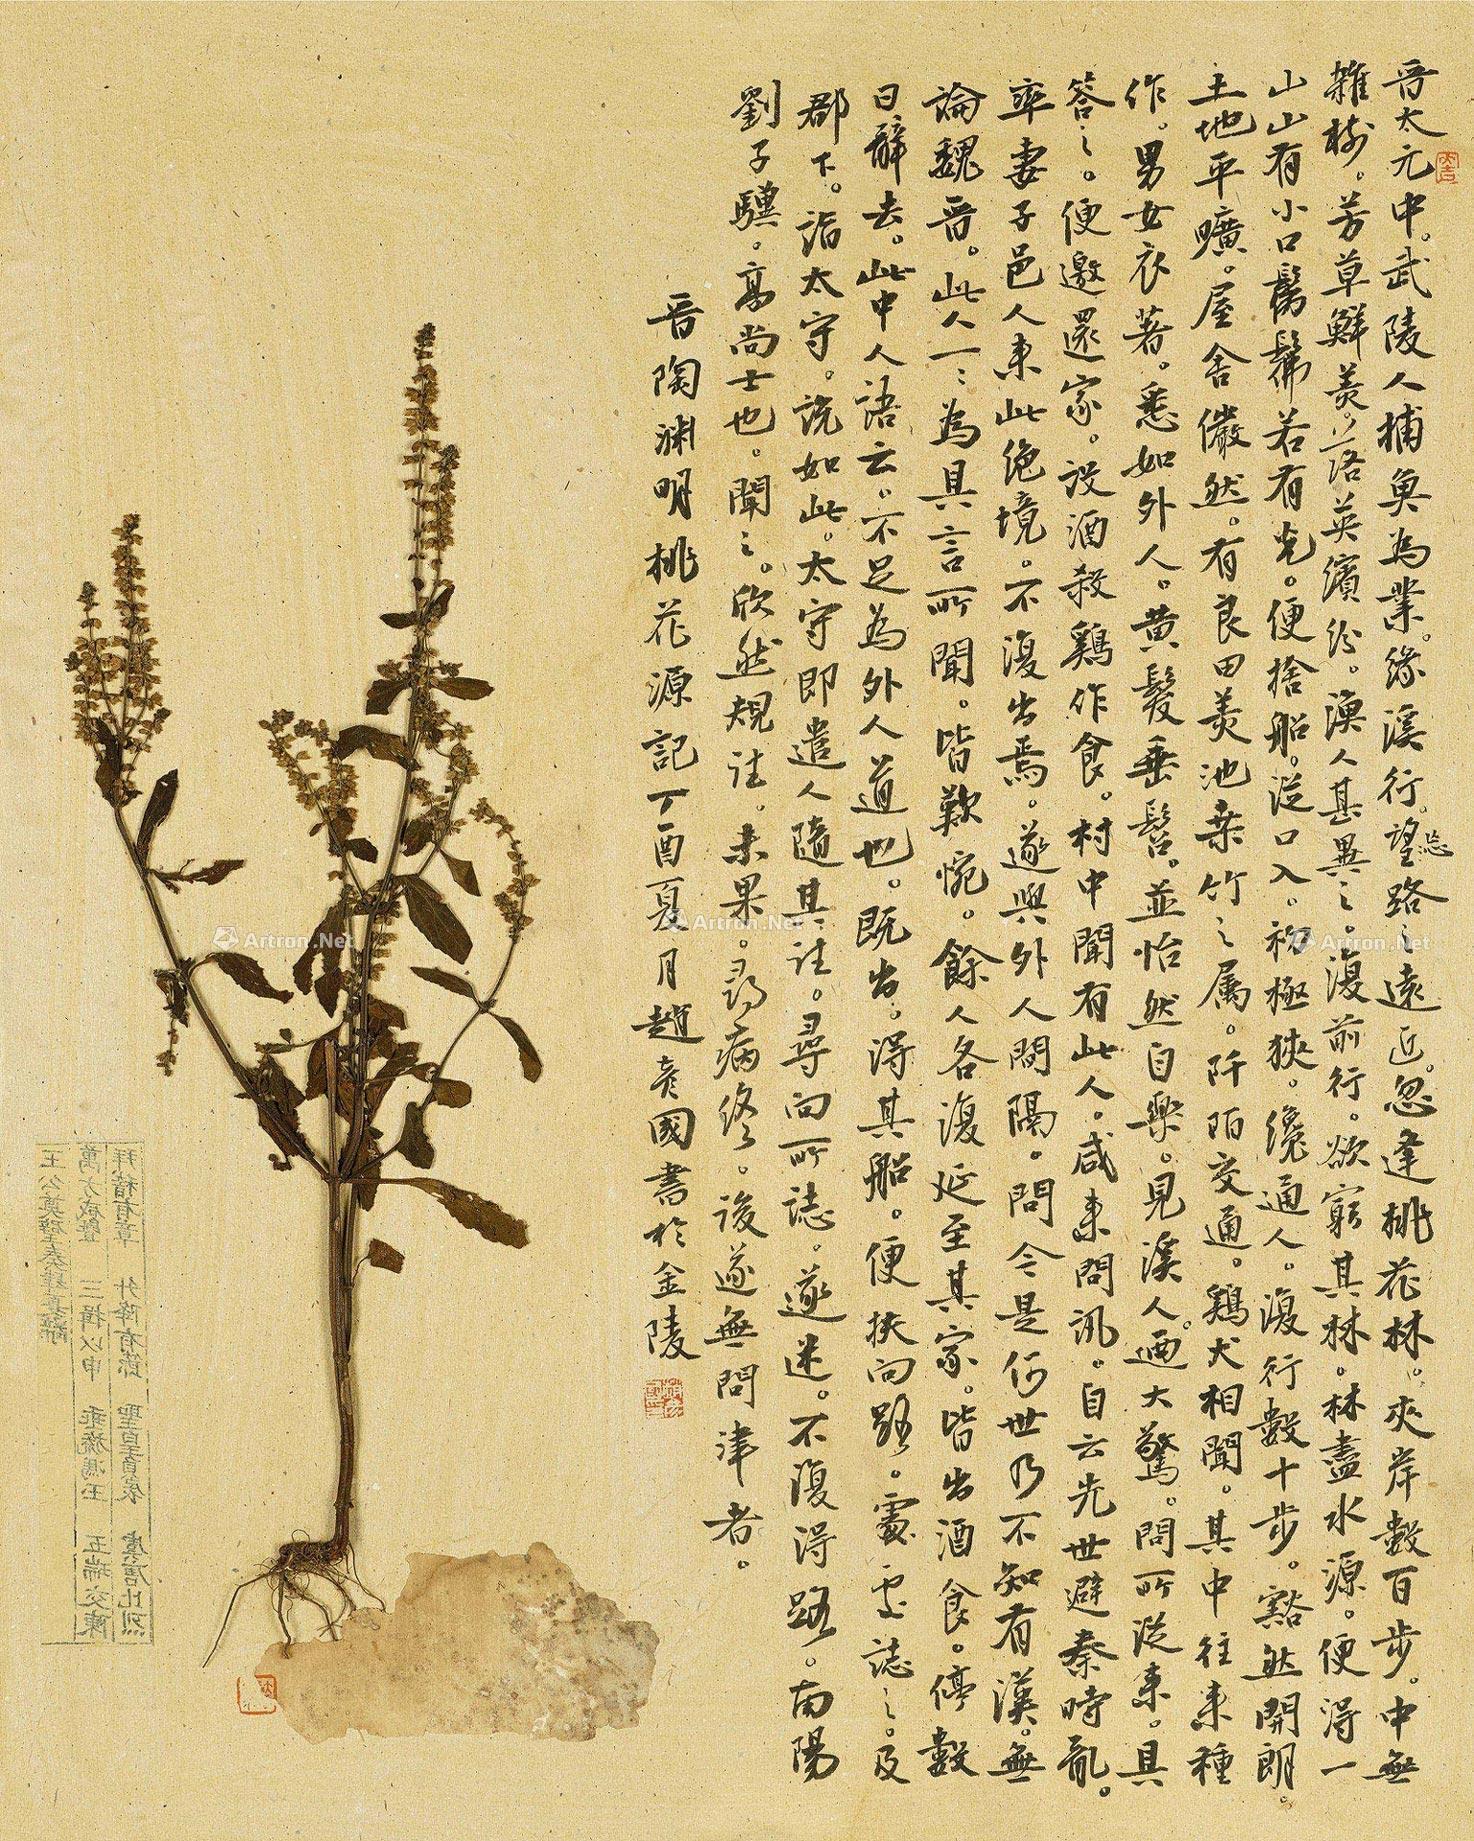 晉太元中。武陵人捕魚為業。緣溪行。望路之遠近。忽逢桃花林。夾岸數百步。中無
忘
雜樹。芳草鮮美。落英繽紛。漁人甚異之。復前行。欲窮其林。林盡水源。便得一
山山有小口髣髴若有光。便捨船。從口入。初極狹。纔通人。復行數十步。豁然開朗。
土地平曠。屋舍儼然。有良田美池桑竹之属。阡陌交通。鷄犬相聞。其中往來種
作。男女衣著。悉如外人。黄髮垂髫。並怡然自樂。見溪人。迺大驚。問所從來。具
答之。便邀還家。設酒殺鷄作食。村中聞有此人。咸來問訊。自云先世避秦時亂。
率妻子邑人來此絶境。不復出焉。遂與外人間隔。問今是何世乃不知有漢。無
論魏晉。此人一一為具言所聞。皆歎惋。餘人各復延至其家。皆出酒食。停數
日辭去。此中人語云。不足為外人道也。既出。得其船。便扶向路。處處誌之。及
郡下。詣太守。說如此。太守即遣人隨其往。尋向所誌。遂迷。不復得路。南陽
劉子驥。高尚士也。聞之。欣然規往。未果。尋病終。後遂無問津者。
晉陶渊明桃花源記丁酉夏月趙彥國書於金陵
王公奠璧奏肆夏辭
萬方咸暨 三揖以申 垂旒馮玉 五瑞交陳
拜稽有章 升降有節 聖皇負扆 虞唐比烈
Artron.Net
Artron.Net
Artron.Net